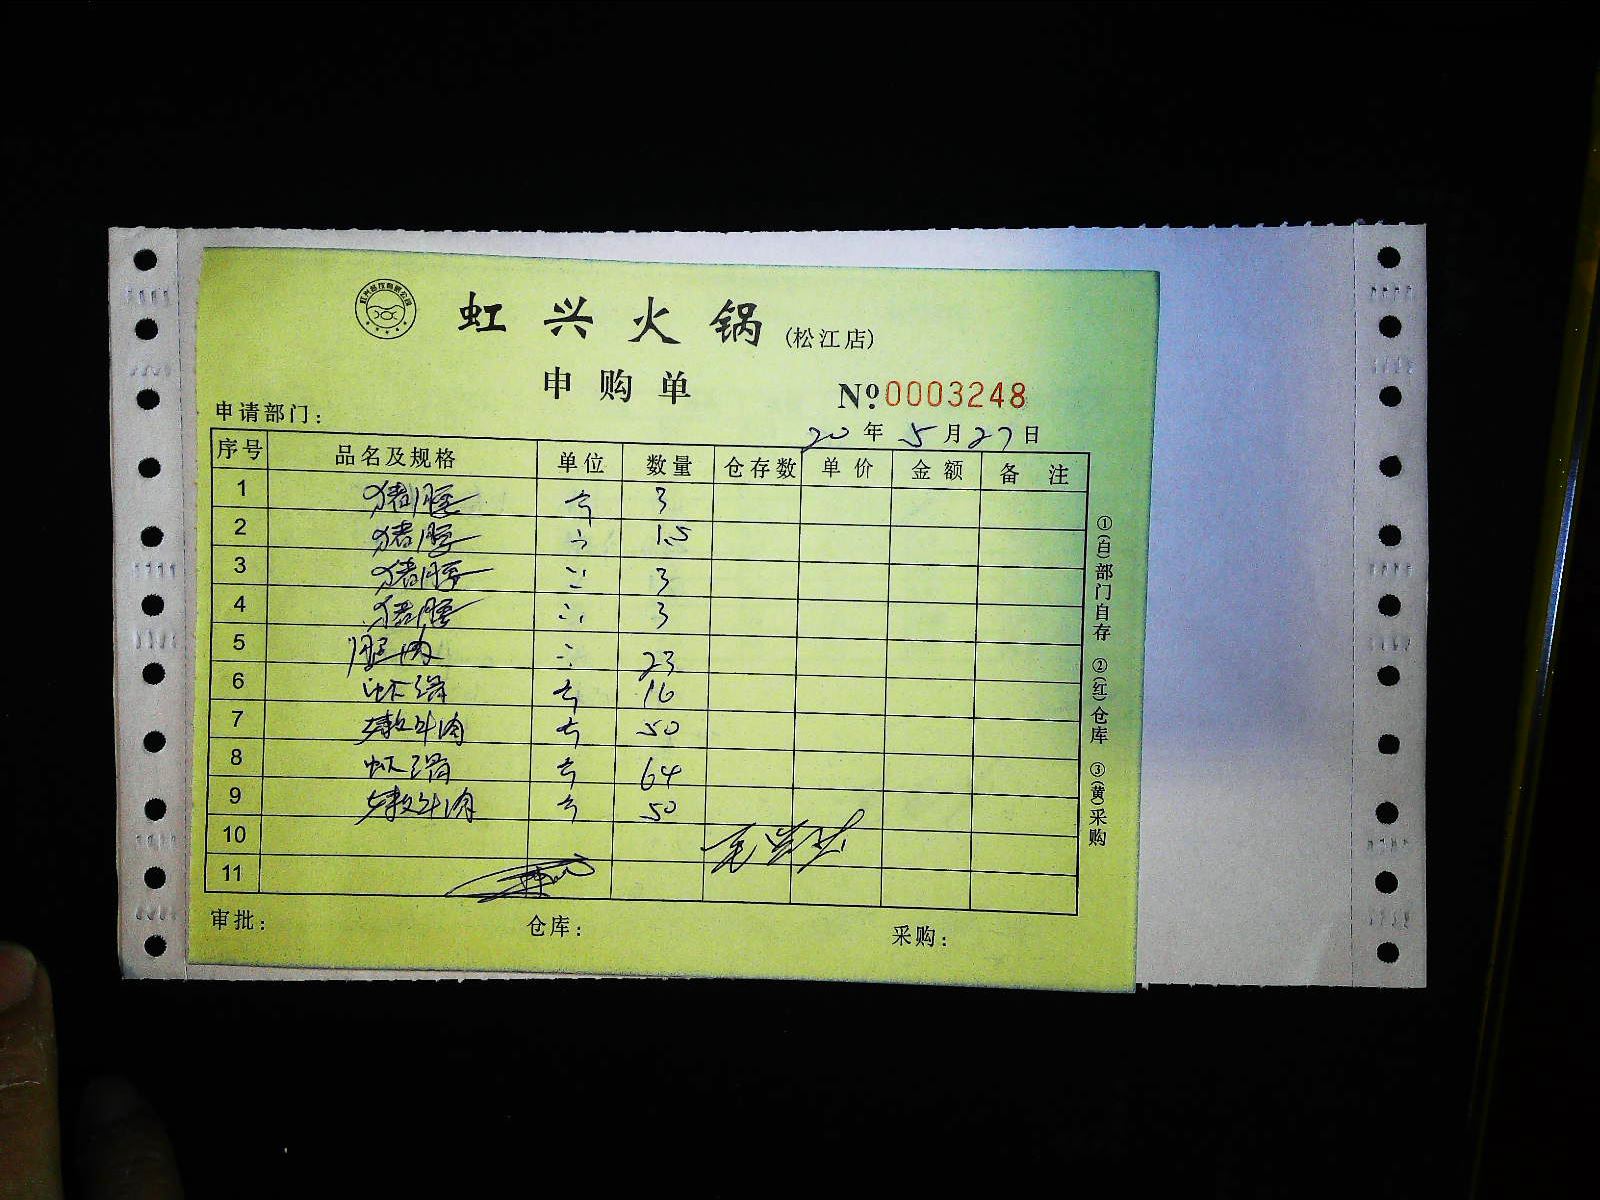 虹兴火锅 (松江店)
申购单 No 0003248
申请部门:
20年5月27日
序号 品名及规格 单位 数量 仓存数 单价 金额 备注
1 猪腰 斤 3
2 猪腰 1.5
3 猪腰 3
4 猪腰 3
5 肉 23
6 虾滑 斤 16
7 嫩牛肉 斤 50
8 虾滑 斤 64
9 嫩牛肉 斤 50
10
11
审批: 仓库: 采购:
①(白)部门自存 ②(红)仓库 ③(黄)采购